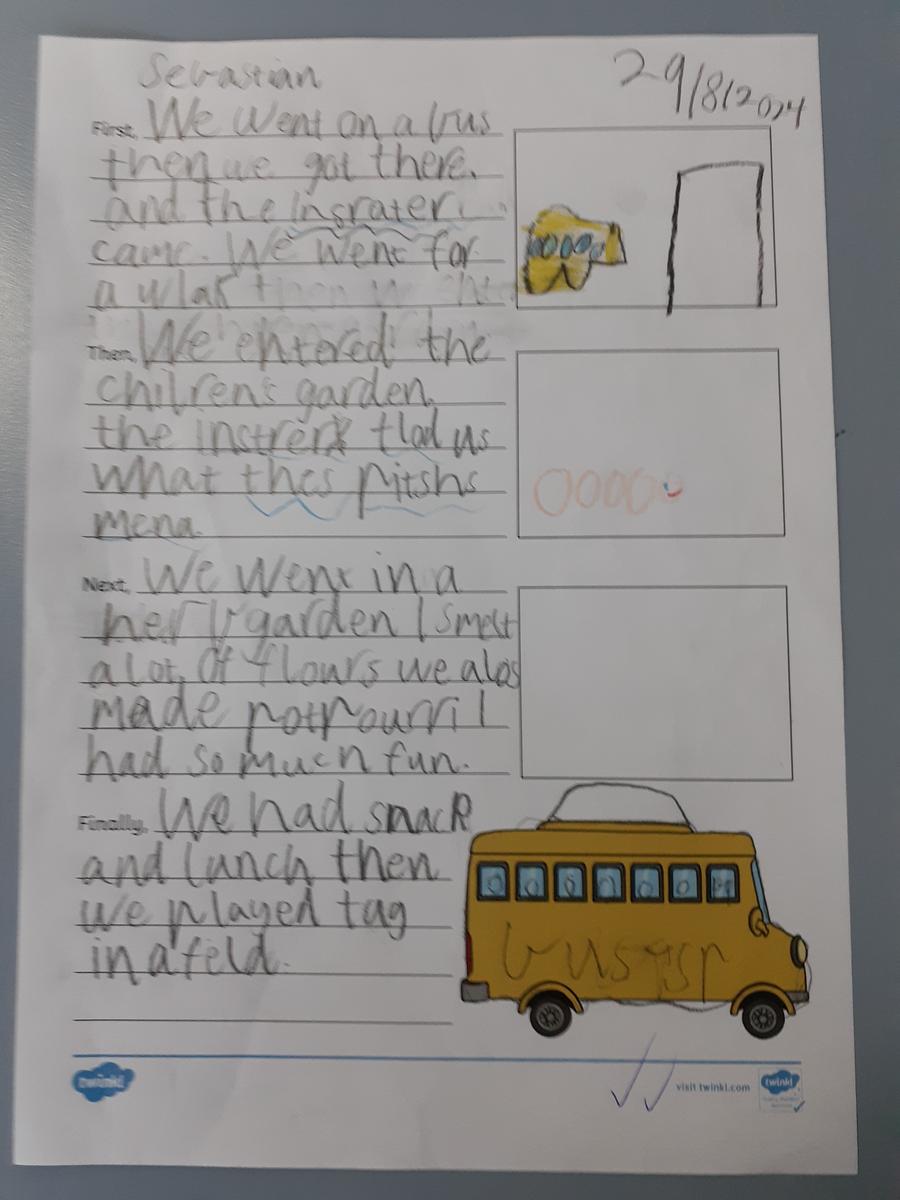 Sebastian
29/8/2024
First, We went on a bus
then we got there.
and the insrater
came. We went for
a wlak
Then, We entered the
chilrens garden.
the instrerx tlod us
what thes pitshs
mena.
Next, We went in a
herb garden I smelt
a lot of flours we alos
made potpourri I
had so much fun.
Finally, We had snack
and lunch then
we played tag
in a feld.
bus
twinkl
visit twinkl.com
twinkl